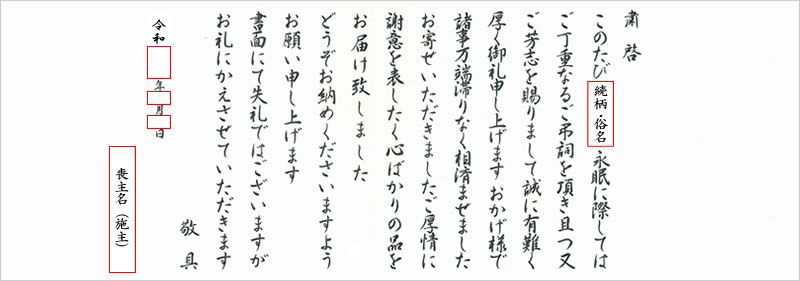 粛啓
このたび続柄・俗名永眠に際しては
ご丁重なるご弔詞を頂き且つ又
ご芳志を賜りまして誠に有難く
厚く御礼申し上げます おかげ様で
諸事万端滞りなく相済ませました
お寄せいただきましたご厚情に
謝意を表したく心ばかりの品を
お届け致しました
どうぞお納めくださいますよう
お願い申し上げます
書面にて失礼ではございますが
お礼にかえさせていただきます
敬具
令和 年 月 日
喪主名（施主）